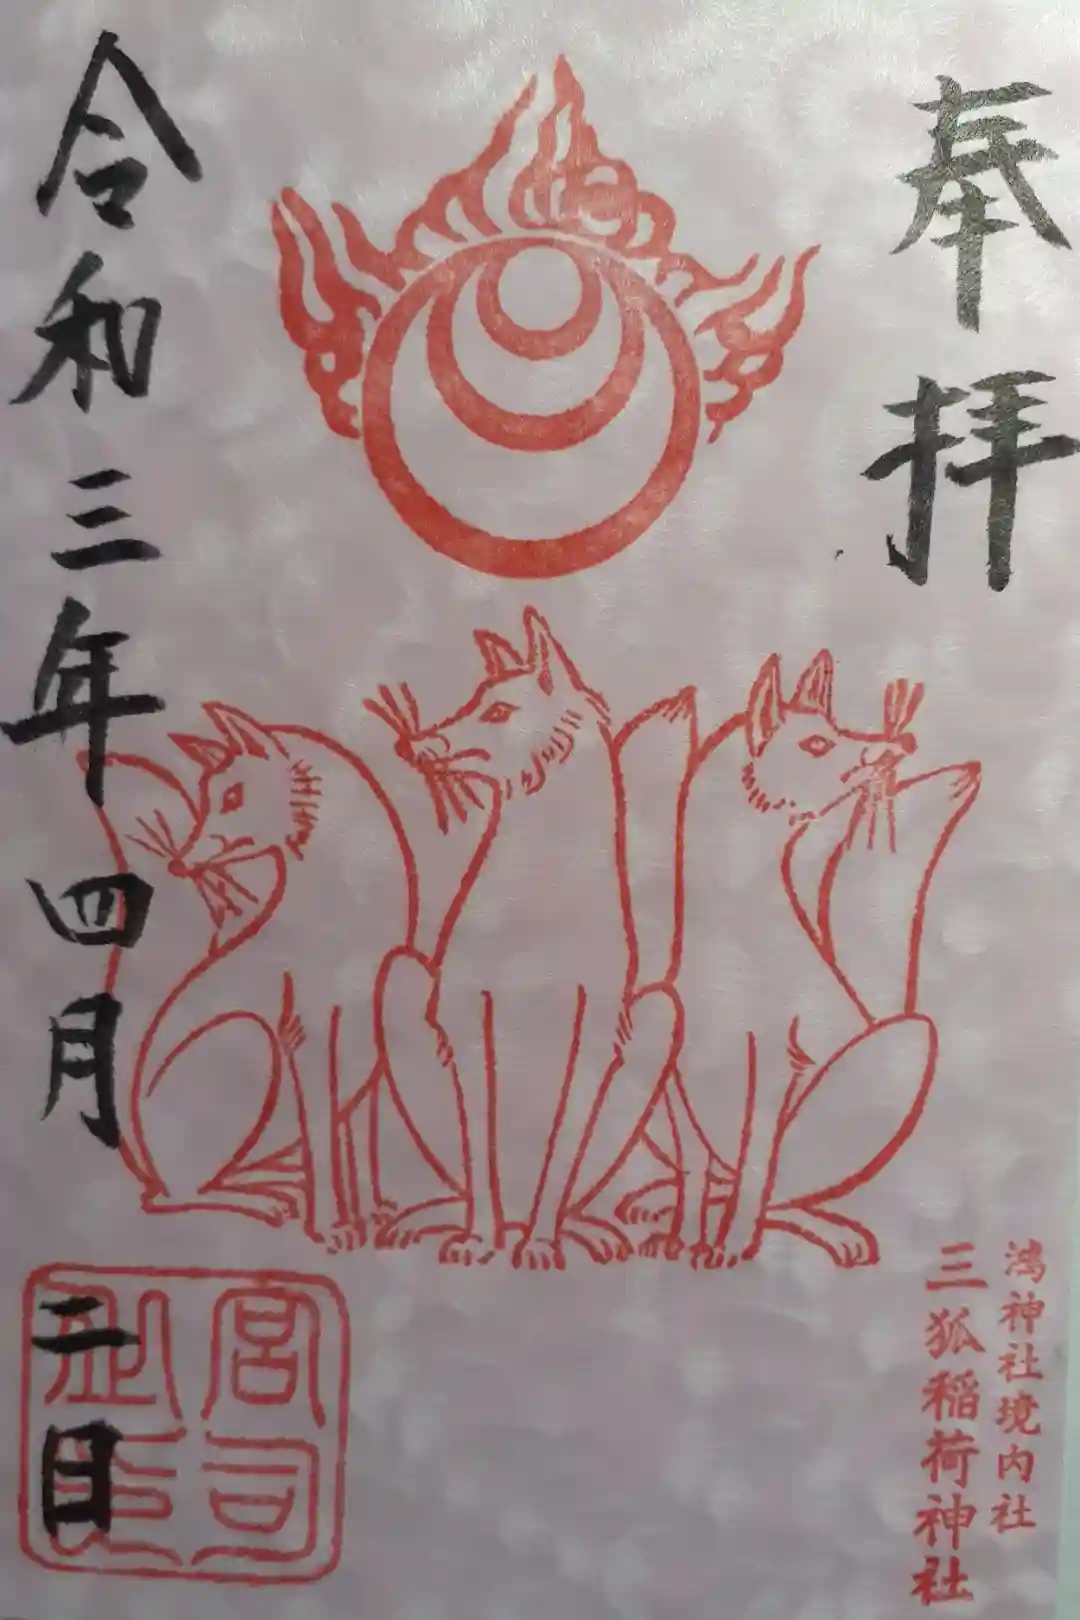 奉拝
鴻神社境内社
三狐稲荷神社
令和三年四月二日
宮司之印